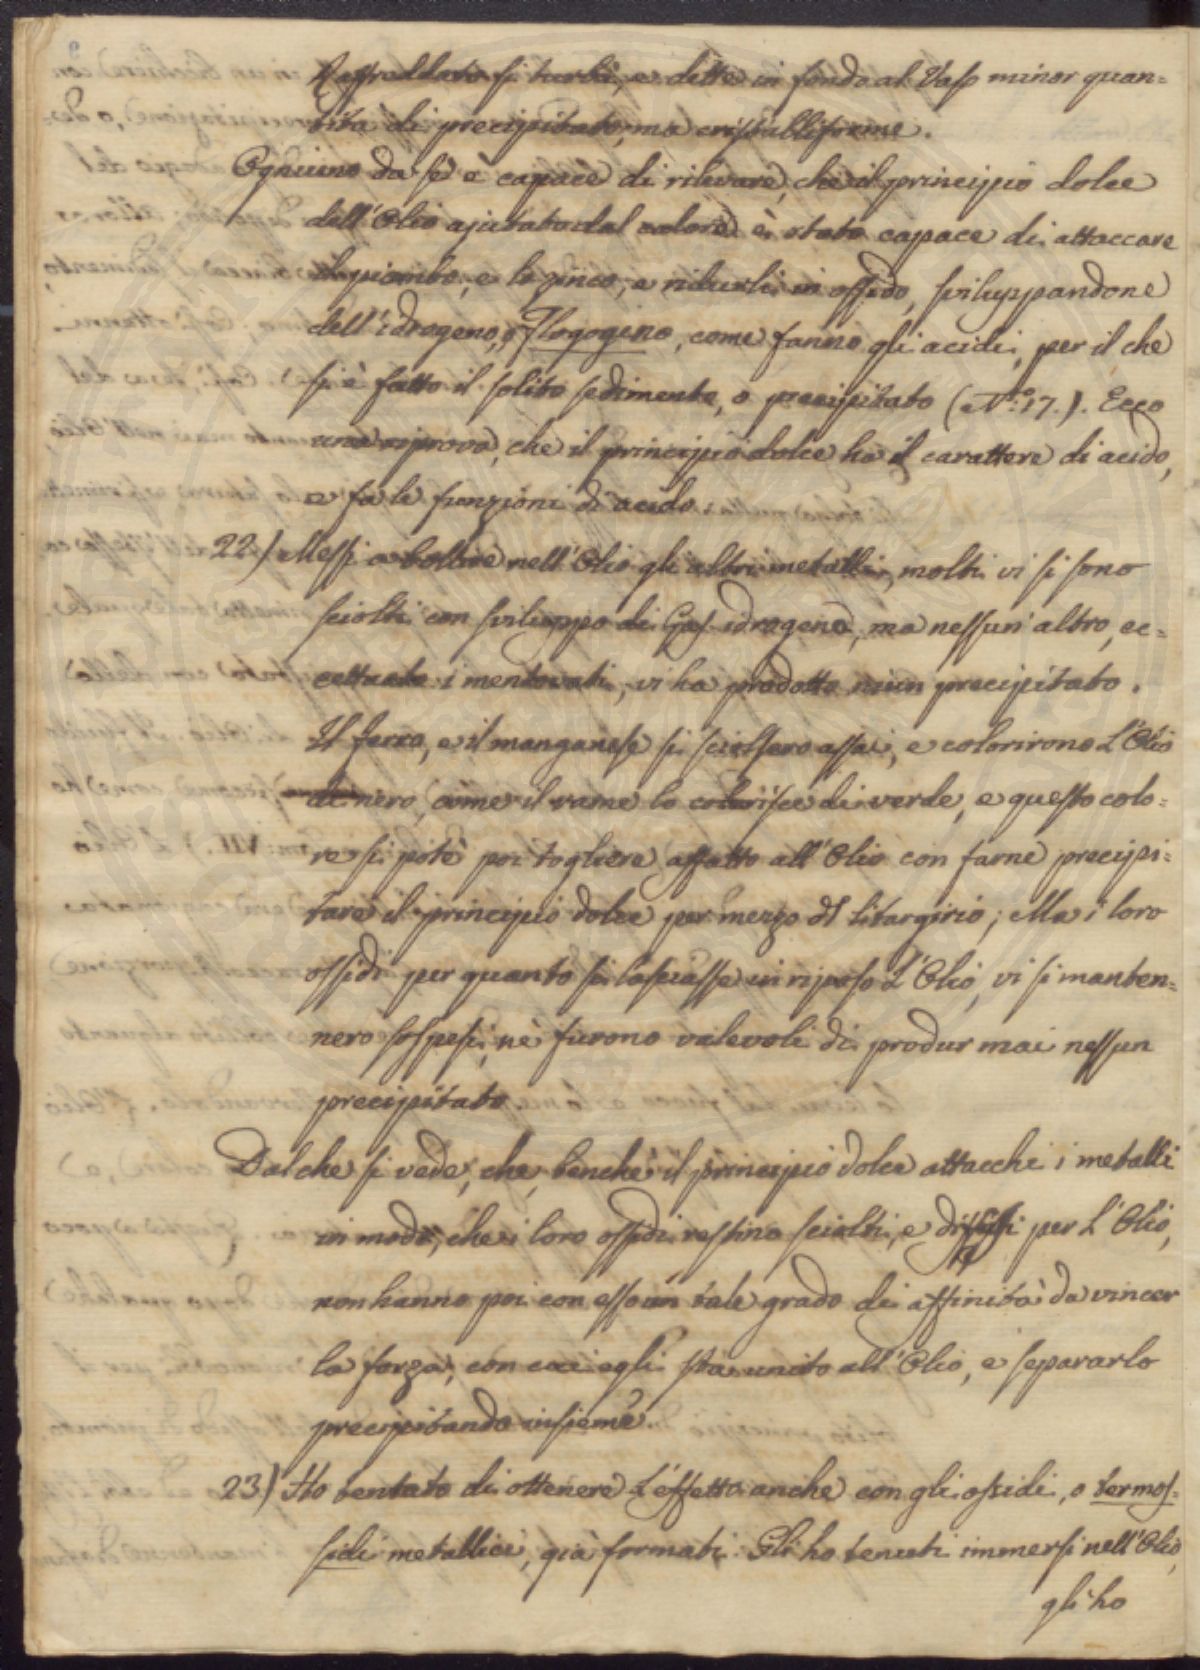 Raffreddato si turbò, e dette in fondo al Vaso minor quan=
tità di precipitato, ma cristalliforme.
Ognuno da sè è capace di rilevare, che il principio dolce
dell'Olio ajutato dal calore è stato capace di attaccare
il piombo, e lo zinco, e ridurli in ossido, sviluppandone
dell'idrogeno, o Flogogino, come fanno gli acidi, per il che
si è fatto il solito sedimento, o precipitato (N.º 17.). Ecco
una riprova, che il principio dolce ha il carattere di acido,
e fa le funzioni di acido.
22) Messi a bollire nell'Olio gli altri metalli, molti vi si sono
sciolti con sviluppo di Gas idrogeno, ma nessun'altro, ec=
cettuato i mentovati, vi ha prodotto niun precipitato.
Il ferro, e il manganese si sciolsero assai, e colorirono l'Olio
di nero, come il rame lo colorisce di verde, e questo colo=
re si potè poi togliere affatto all'Olio con farne precipi=
tare il principio dolce per mezzo dl litargirio; Ma i loro
ossidi per quanto si lasciasse in riposo l'Olio, vi si manten=
nero sospesi, nè furono valevoli di produr mai nessun
precipitato.
Dal che si vede, che, benchè il principio dolce attacchi i metalli
in modo, che i loro ossidi restino sciolti, e diffusi per l'Olio,
non hanno poi con esso un tale grado di affinità da vincer
la forza, con cui egli sta unito all'Olio, e separarlo
precipitando insieme.
23) Ho tentato di ottenere l'effetto anche con gli ossidi, o termos=
sidi metallici, già formati. Gli ho tenuti immersi nell'Olio,
gli ho